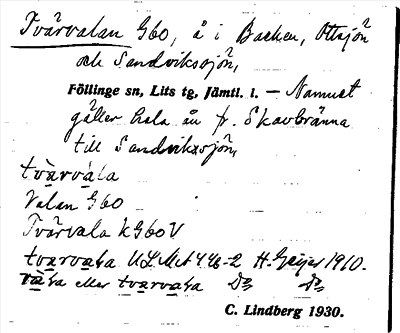 Tvärvalan G60, å i Backen, Ottsjön
och Sandviksjön,
Föllinge sn, Lits tg, Jämtl. l. — Namnet
gäller hela ån fr. Skavbränna
till Sandviksjön,
tvärvala
Valan G60
Tvärvala kG60V
tvarvata ULMA 446-2 H. Geijer 1910.
vata eller tvarvata Do Do
C. Lindberg 1930.